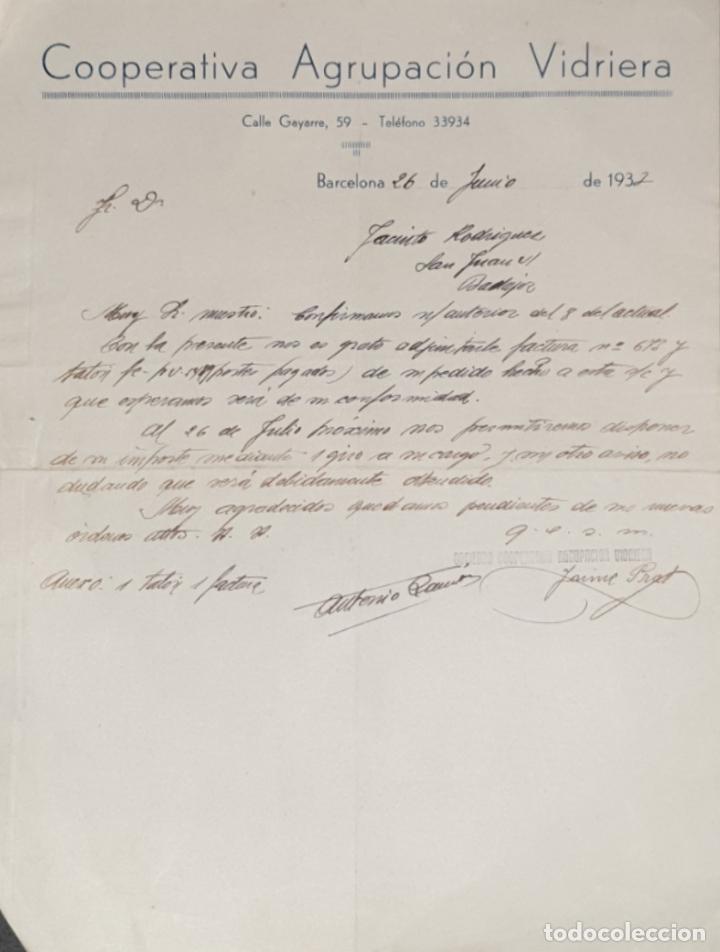 Cooperativa Agrupación Vidriera
Calle Gayarre, 59 - Teléfono 33934
Barcelona 26 de Junio de 1932
Sr. Dn
Jacinto Rodriguez
San Juan
Badajoz
Muy Sr. nuestro: Confirmamos n/ anterior del 8 del actual.
Con la presente nos es grato adjuntarle factura nº y
talón (portes pagados) de su pedido hecho a esta s/c y
que esperamos será de su conformidad.
Al 26 de Julio próximo nos permitiremos disponer
de su importe mediante 1 giro a su cargo, y s/ny otro aviso, no
dudando que será debidamente atendido.
Muy agradecidos quedamos pendientes de sus nuevas
órdenes attos. S. S.
q. e. s. m.
SOCIEDAD COOPERATIVA AGRUPACION VIDRIERA
Anexo: 1 talón 1 factura
Antonio Ramón
Jaime Prat
todocoleccion